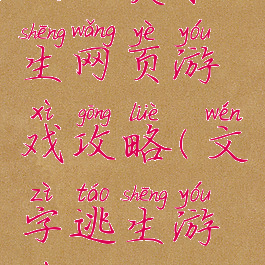 shēng wǎng yè yóu
生网页游
xì gōng lüè wén
戏攻略(文
zì táo shēng yóu
字逃生游